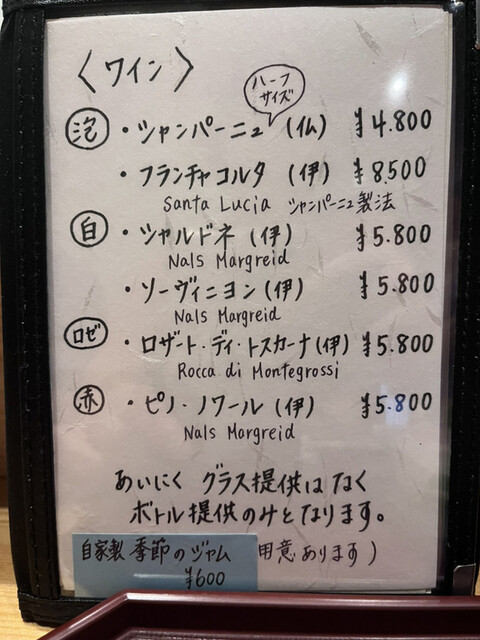 〈ワイン〉
ハーフ
サイズ
泡 ・シャンパーニュ (仏) ¥4.800
・フランチャコルタ (伊) ¥8.500
Santa Lucia シャンパーニュ製法
白 ・シャルドネ (伊) ¥5.800
Nals Margreid
・ソーヴィニヨン(伊) ¥5.800
Nals Margreid
ロゼ ・ロザート・ディ・トスカーナ(伊) ¥5.800
Rocca di Montegrossi
赤 ・ピノ・ノワール (伊) ¥5.800
Nals Margreid
あいにく グラス提供はなく
ボトル提供のみとなります。
用意あります)
自家製 季節のジャム
¥600